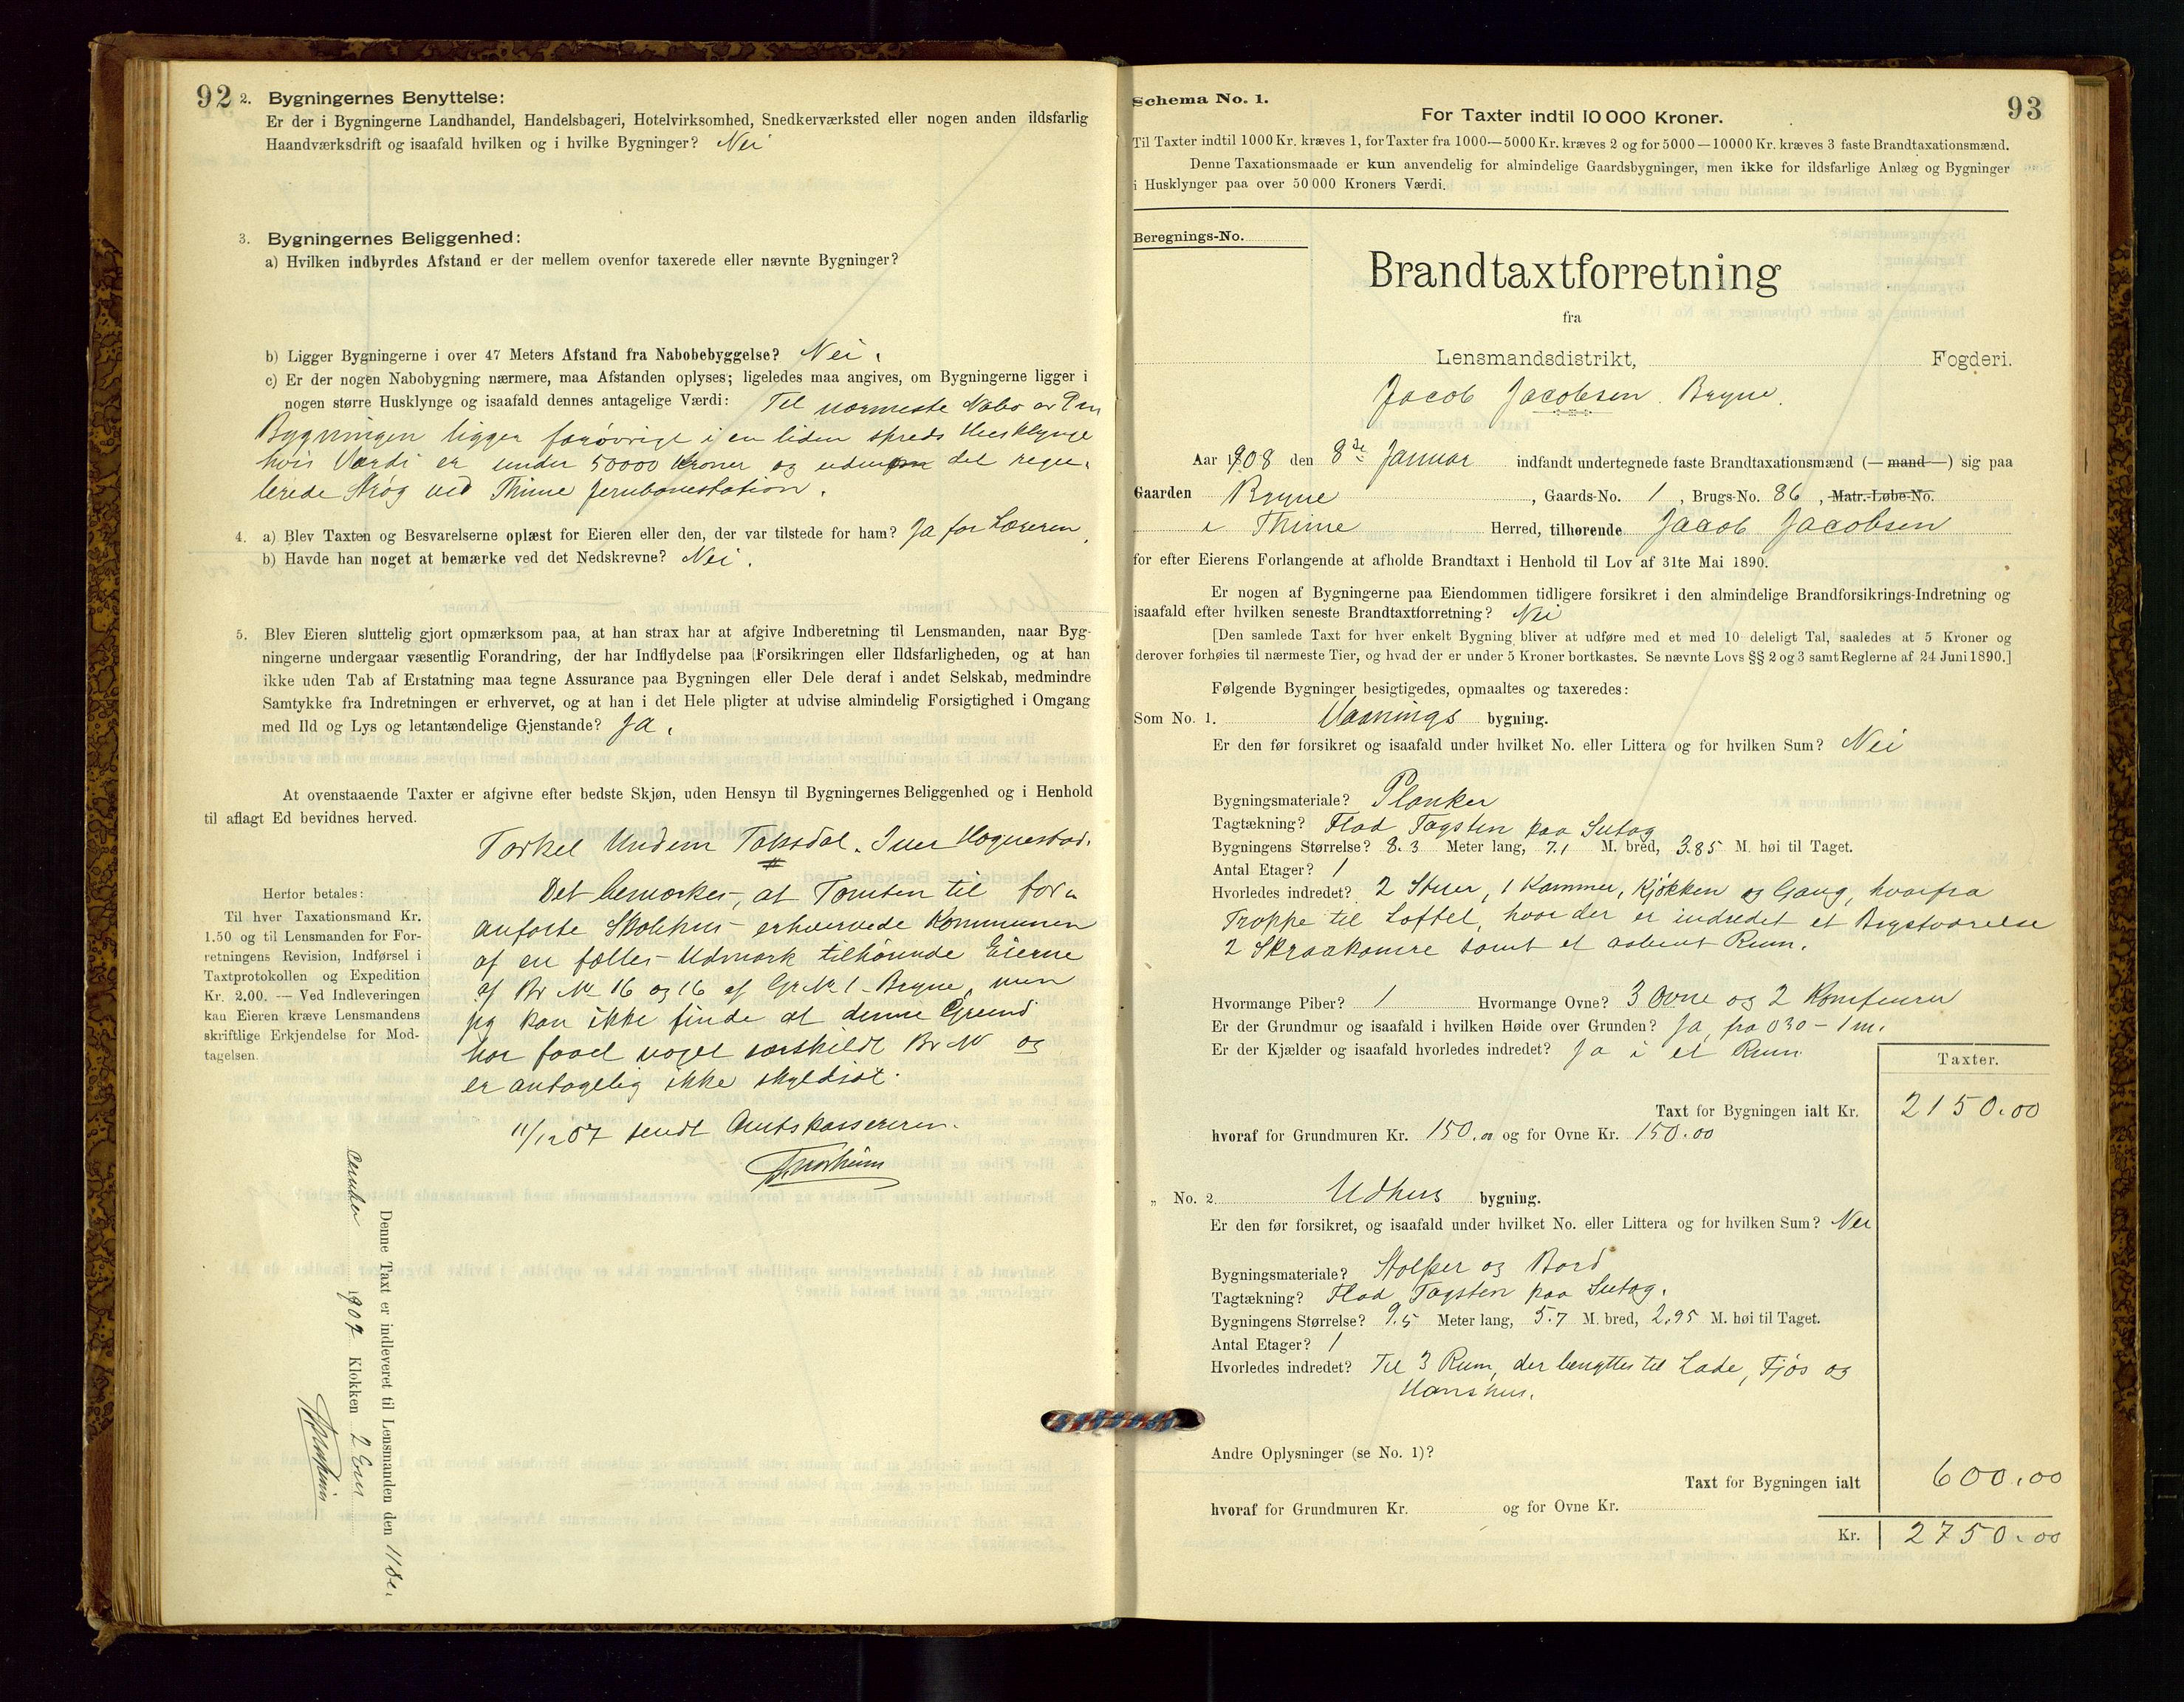 92
2. Bygningernes Benyttelse:
Er der i Bygningerne Landhandel, Handelsbageri, Hotelvirksomhed, Snedkerværksted eller nogen anden ildsfarlig
Haandværksdrift og isaafald hvilken og i hvilke Bygninger? Nei
3. Bygningernes Beliggenhed:
a) Hvilken indbyrdes Afstand er der mellem ovenfor taxerede eller nævnte Bygninger?
b) Ligger Bygningerne i over 47 Meters Afstand fra Nabobebyggelse? Nei.
c) Er der nogen Nabobygning nærmere, maa Afstanden oplyses; ligeledes maa angives, om Bygningerne ligger i
nogen større Husklynge og isaafald dennes antagelige Værdi: Til nærmeste Nabo er
Bygningen ligger forøvrigt i en liden spreds Husklynge
hvis Værdi er under 50000 Kroner og udenom det regu-
lerede Strøg ved Thime Jernbanestation.
4. a) Blev Taxten og Besvarelserne oplæst for Eieren eller den, der var tilstede for ham? Ja for Læreren.
b) Havde han noget at bemærke ved det Nedskrevne? Nei.
5. Blev Eieren sluttelig gjort opmærksom paa, at han strax har at afgive Indberetning til Lensmanden, naar Byg-
ningerne undergaar væsentlig Forandring, der har Indflydelse paa Forsikringen eller Ildsfarligheden, og at han
ikke uden Tab af Erstatning maa tegne Assurance paa Bygningen eller Dele deraf i andet Selskab, medmindre
Samtykke fra Indretningen er erhvervet, og at han i det Hele pligter at udvise almindelig Forsigtighed i Omgang
med Ild og Lys og letantændelige Gjenstande? Ja.
At ovenstaaende Taxter er afgivne efter bedste Skjøn, uden Hensyn til Bygningernes Beliggenhed og i Henhold
til aflagt Ed bevidnes herved.
Torkel Undem Taksdal. Iver Høgnestad.
Det bemærkes, at Tomten til for-
anførte Skolehus erhvervede Kommunen
af en fælles Udmark tilhørende Eierne
af Br No 16 og 16 af Gr No 1 Bryne, men
jeg kan ikke finde at denne Grund
har faaet noget særskildt Br No og
er antagelig ikke skyldsat.
11/12 07 sendt Amtskassereren.
Herfor betales:
Til hver Taxationsmand Kr.
1.50 og til Lensmanden for For-
retningens Revision, Indførsel i
Taxtprotokollen og Expedition
Kr. 2.00. — Ved Indleveringen
kan Eieren kræve Lensmandens
skriftlige Erkjendelse for Mod-
tagelsen.
Denne Taxt er indleveret til Lensmanden den 11 De
cember 1907 Klokken 2 Em
93
Schema No. 1.
For Taxter indtil 10 000 Kroner.
Til Taxter indtil 1000 Kr. kræves 1, for Taxter fra 1000—5000 Kr. kræves 2 og for 5000—10000 Kr. kræves 3 faste Brandtaxationsmænd.
Denne Taxationsmaade er kun anvendelig for almindelige Gaardsbygninger, men ikke for ildsfarlige Anlæg og Bygninger
i Husklynger paa over 50 000 Kroners Værdi.
Beregnings-No.
Brandtaxtforretning
fra
Lensmandsdistrikt, Fogderi.
Jacob Jacobsen. Bryne.
Aar 1908 den 8de Januar indfandt undertegnede faste Brandtaxationsmænd (— mand —) sig paa
Gaarden Bryne, Gaards-No. 1, Brugs-No. 86, Matr.-Løbe-No.
i Thime Herred, tilhørende Jacob Jacobsen
for efter Eierens Forlangende at afholde Brandtaxt i Henhold til Lov af 31te Mai 1890.
Er nogen af Bygningerne paa Eiendommen tidligere forsikret i den almindelige Brandforsikrings-Indretning og
isaafald efter hvilken seneste Brandtaxtforretning? Nei
[Den samlede Taxt for hver enkelt Bygning bliver at udføre med et med 10 deleligt Tal, saaledes at 5 Kroner og
derover forhøies til nærmeste Tier, og hvad der er under 5 Kroner bortkastes. Se nævnte Lovs §§ 2 og 3 samt Reglerne af 24 Juni 1890.]
Følgende Bygninger besigtigedes, opmaaltes og taxeredes:
Som No. 1. Vaanings bygning.
Er den før forsikret og isaafald under hvilket No. eller Littera og for hvilken Sum? Nei
Bygningsmateriale? Planker
Tagtækning? Flad Tagsten paa Sutag
Bygningens Størrelse? 8.3 Meter lang, 7.1 M. bred, 3.85 M. høi til Taget.
Antal Etager? 1
Hvorledes indredet? 2 Stuer, 1 Kammer, Kjøkken og Gang, hvorfra
Trappe til Loftet, hvor der er indredet et Brystværelse
2 Skraakamre samt et aabent Rum.
Hvormange Piber? 1 Hvormange Ovne? 3 Ovne og 2 Komfurer
Er der Grundmur og isaafald i hvilken Høide over Grunden? Ja, fra 0.30 – 1 m.
Er der Kjælder og isaafald hvorledes indredet? Ja i et Rum.
Taxter.
Taxt for Bygningen ialt Kr. 2150.00
hvoraf for Grundmuren Kr. 150.00 og for Ovne Kr. 150.00
„ No. 2 Udhus bygning.
Er den før forsikret, og isaafald under hvilket No. eller Littera og for hvilken Sum? Nei
Bygningsmateriale? Stolper og Bord
Tagtækning? Flad Tagsten paa Sutag.
Bygningens Størrelse? 9.5 Meter lang, 5.7 M. bred, 2.95 M. høi til Taget.
Antal Etager? 1
Hvorledes indredet? Til 3 Rum, der benyttes til Lade, Fjøs og
Vanshus.
Andre Oplysninger (se No. 1)?
Taxt for Bygningen ialt 600.00
hvoraf for Grundmuren Kr. og for Ovne Kr.
Kr. 2750.00